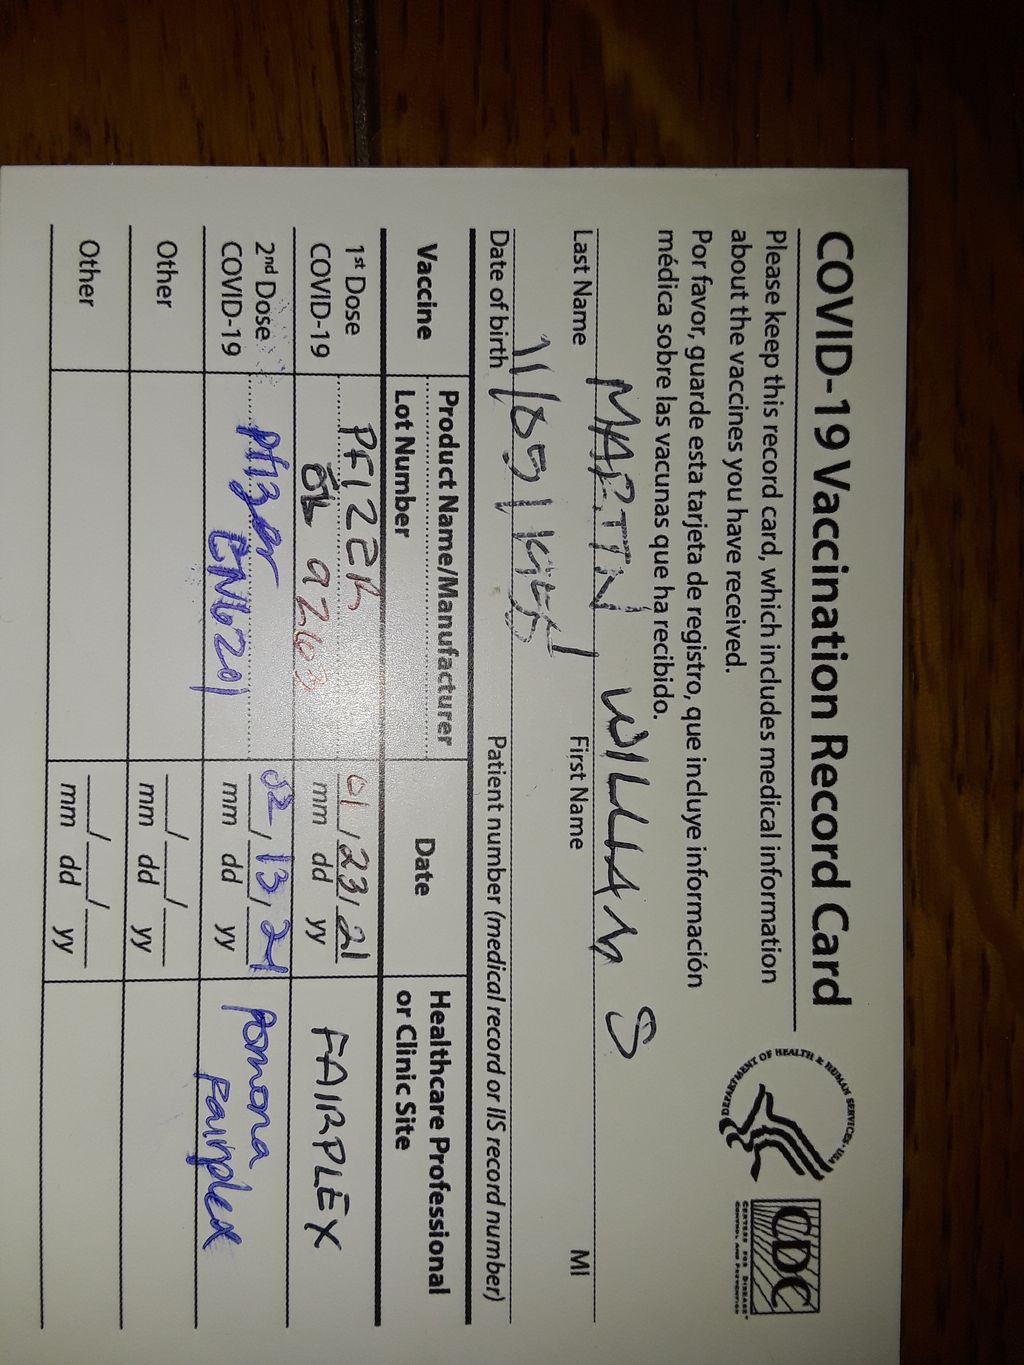 COVID-19 Vaccination Record Card
Please keep this record card, which includes medical information
about the vaccines you have received.
Por favor, guarde esta tarjeta de registro, que incluye información
médica sobre las vacunas que ha recibido.
DEPARTMENT OF HEALTH & HUMAN SERVICES • USA
CDC
CENTERS FOR DISEASE
CONTROL AND PREVENTION
MARTIN WILLIAM S
Last Name First Name MI
11/05/
Date of birth Patient number (medical record or IIS record number)
Vaccine Product Name/Manufacturer Date Healthcare Professional
Lot Number or Clinic Site
1st Dose PFIZER 01/23/21 FAIRPLEX
COVID-19 9263 mm dd yy
2nd Dose Pfizer 02/13/21 Pomona
COVID-19 EN6201 mm dd yy Fairplex
Other ___/___/___
mm dd yy
Other ___/___/___
mm dd yy